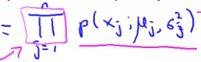 = ∏_{j=1}^{n} p(x_j; μ_j, σ_j^2)